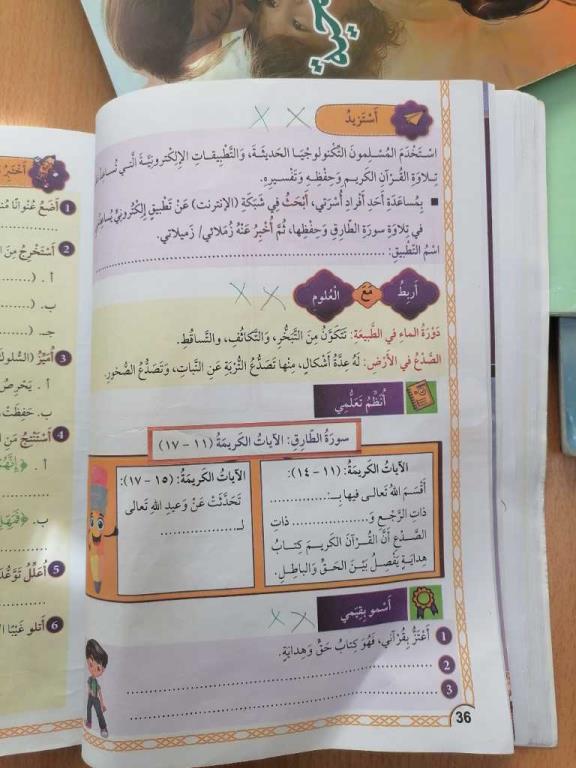 صحية
أَسْتَزيدُ
اسْتَخْدَمَ المُسْلِمونَ التِّكنولوجْيا الحَديثَةَ، وَالتَّطْبيقاتِ الإِلِكْترونِيَّةَ الَّتي تُساعِدُ
تِلاوَةِ القُرْآنِ الكَريمِ وَحِفْظِهِ وَتَفْسيرِهِ.
بِمُساعَدَةِ أَحَدِ أَفْرادِ أُسْرَتي، أَبْحَثُ في شَبَكَةِ (الإِنترنت) عَنْ تَطْبيقٍ إِلِكْترونِيٍّ
في تِلاوَةِ سورَةِ الطّارِقِ وَحِفْظِها، ثُمَّ أُخْبِرُ عَنْهُ زُمَلائي/ زَميلاتي.
اسْمُ التَّطْبيقِ: ........................
أَرْبِطُ مَعَ العُلومِ
دَوْرَةُ الماءِ في الطَّبيعَةِ: تَتَكَوَّنُ مِنَ التَّبَخُّرِ، وَالتَّكاثُفِ، وَالتَّساقُطِ.
الصَّدْعُ في الأَرْضِ: لَهُ عِدَّةُ أَشْكالٍ، مِنْها تَصَدُّعُ التُّرْبَةِ عَنِ النَّباتِ، وَتَصَدُّعُ الصُّخورِ.
أُنَظِّمُ تَعَلُّمي
سورَةُ الطّارِقِ: الآياتُ الكَريمَةُ (١١ - ١٧)
الآياتُ الكَريمَةُ: (١١ - ١٤):
أَقْسَمَ اللهُ تَعالى فيها بِـ: ............
ذاتِ الرَّجْعِ وَ............ ذاتِ
الصَّدْعِ أَنَّ القُرْآنَ الكَريمَ كِتابُ
هِدايَةٍ يَفْصِلُ بَيْنَ الحَقِّ وَالباطِلِ.
الآياتُ الكَريمَةُ: (١٥ - ١٧):
تَحَدَّثَتْ عَنْ وَعيدِ اللهِ تَعالى
لِـ ............
أَسْمو بِقِيَمي
1 أَعْتَزُّ بِقُرْآني، فَهُوَ كِتابُ حَقٍّ وَهِدايَةٍ.
2 ........................
3 ........................
36
أَخْتَبِرُ
1 أَضَعُ عُنْوانًا
2 أَسْتَخْرِجُ مِنَ
أ . (
ب. (
جـ. (
3 أُمَيِّزُ (السُّلوكَ
أ . يَحْرِصُ
ب. حَفِظَتْ
4 أَسْتَنْتِجُ مِنَ
أ . ﴿إِنَّهُمْ
ب. ﴿فَمَهِّلِ
5 أُعَلِّلُ
6 أَتْلو غَيْبًا